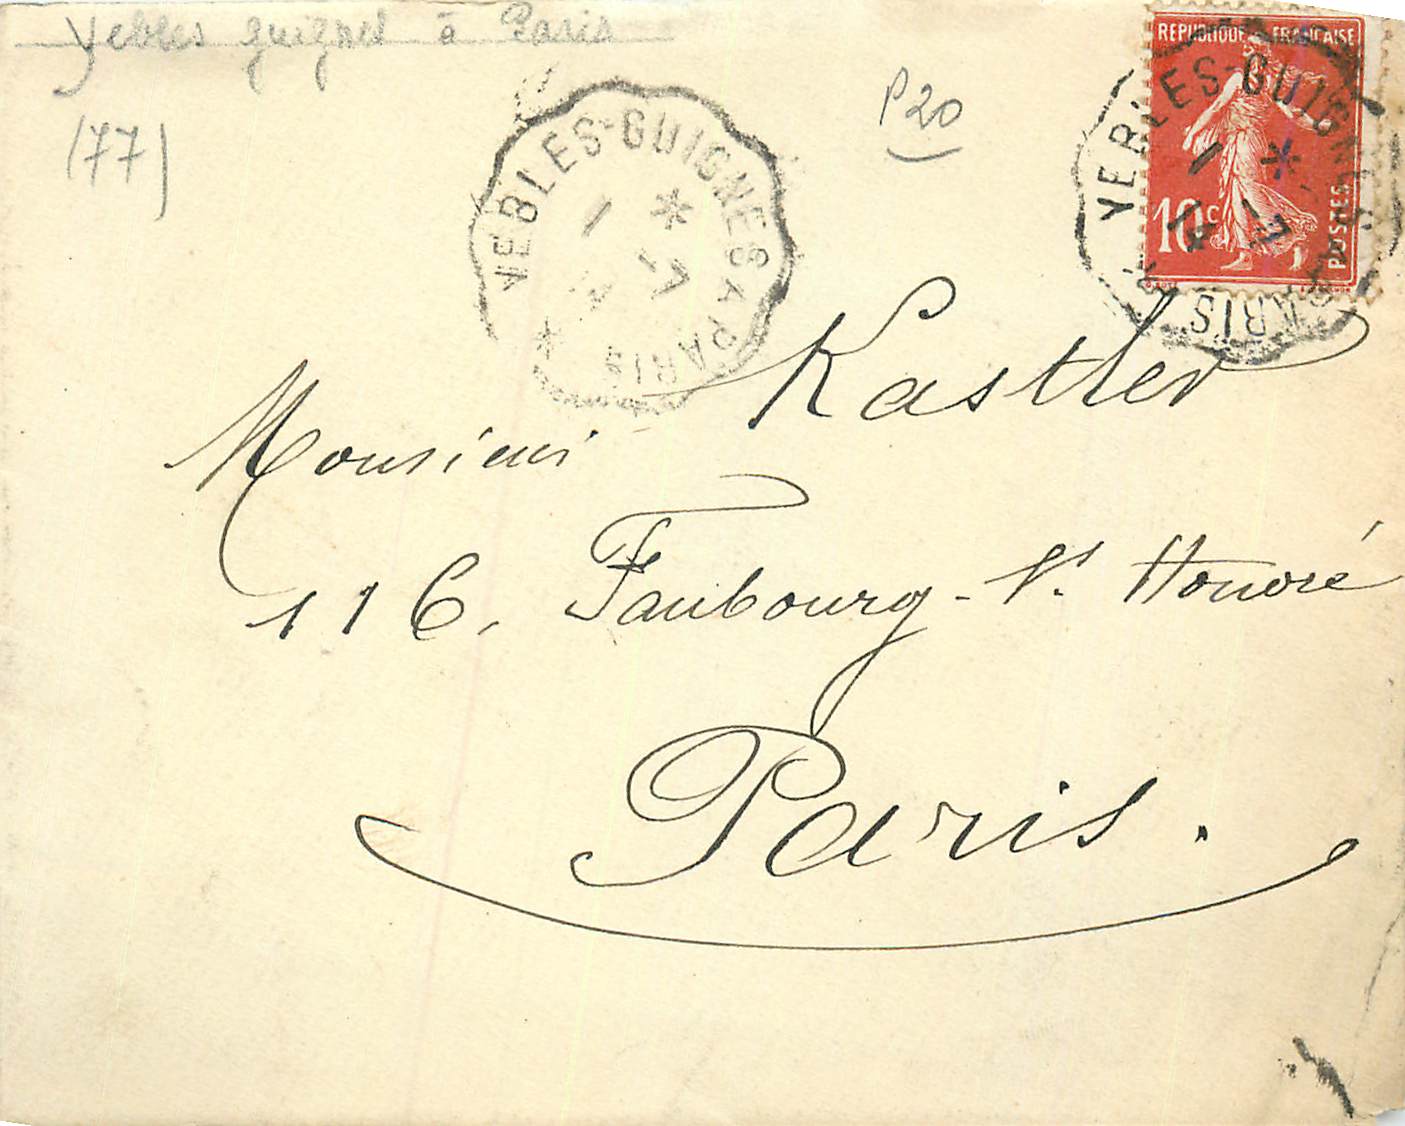 Yebles guignes à Paris
(77)
P20
YEBLES-GUIGNES A PARIS
1
*
17
*
REPUBLIQUE FRANÇAISE
10c
POSTES
YEBLES-GUIGNES A PARIS
1
*
17
14
Monsieur Kastler
116, Faubourg-St. Honoré
Paris.